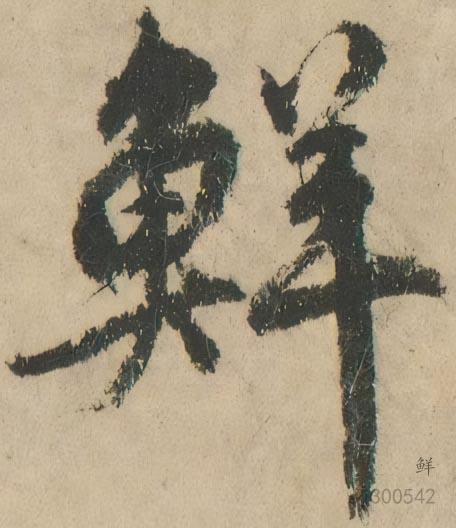 鮮
鲜
300542